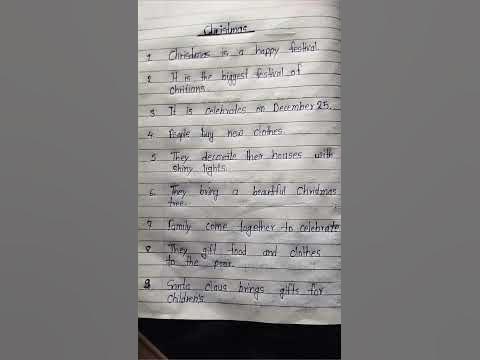 Christmas
1 Christmas is a happy festival.
2 It is the biggest festival of
chritians.
3 It is celebrates on December 25.
4 People buy new clothes.
5 They decorate their houses with
shiny lights.
6 They bring a beautiful Christmas
tree.
7 Family come together to celebrate
8 They gift food and clothes
to the poor.
9 Santa claus brings gifts for
children's